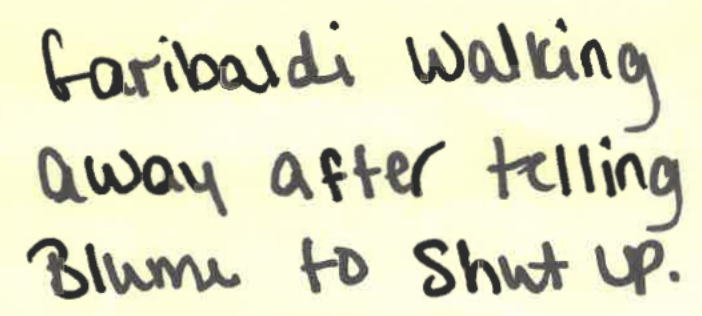 Garibaldi Walking
away after telling
Blume to Shut up.